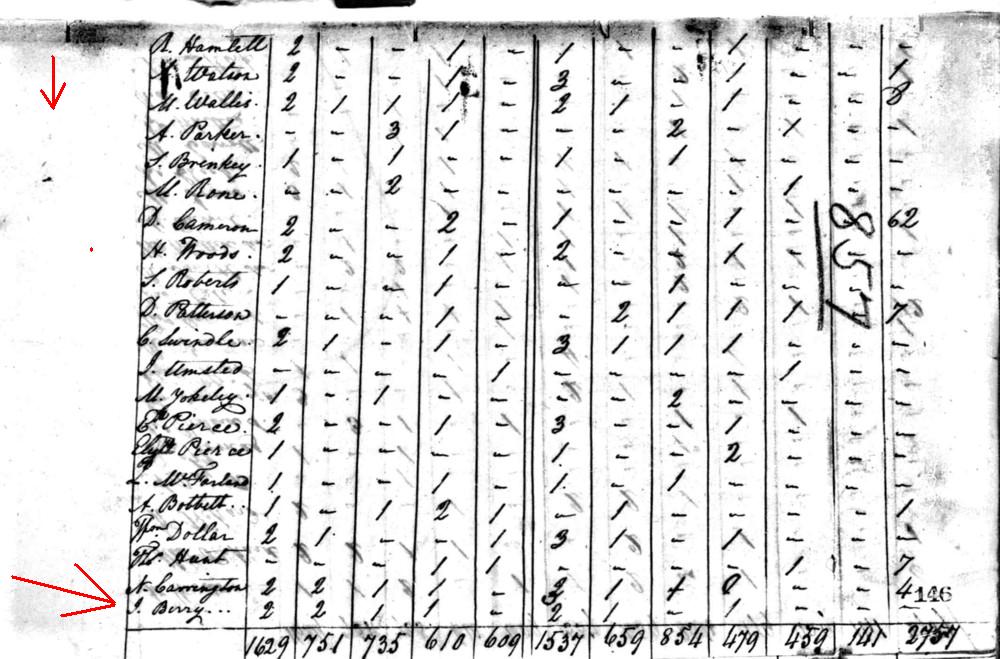 R. Hamlett 2 – – 1 – 1 – – 1 – – –
Watson 2 – – 1 – 3 – – 1 – – 1
M. Wallis. 2 1 1 1 – 2 1 – 1 – – 8
A. Parker. – – 3 1 – – – 2 – 1 – –
S. Brinkey. 1 – 1 – – 1 – 1 – – – –
M. Rone. – – 2 – – – – – – 1 – –
D. Cameron 2 – – 2 – 1 – – 1 – – 62
H. Woods. 2 – – 1 – 2 – 1 – –
S. Roberts 1 – – 1 – – – 1 – – – –
D. Patterson – – – 1 – – 2 1 1 1 – 7
857
C. Swindle. 2 1 – – – 3 1 1 1 – – –
J. Umsted – – – – 1 – – – – 1 – –
M. Yokeley. 1 – 1 – – – – 2 – – – –
E. Pierce. 2 – – 1 – 3 – – 1 – – –
Pierce 1 – – – – 1 – – 2 – – –
McFarland 1 – – 1 – 1 – 1 – – – –
A. Bobbett.. 1 – 1 2 1 – 1 – – – – 1
Dollar 2 1 – – 1 3 1 – 1 – – –
Tho. Hant – – – 1 1 – – – – 1 – 7
N. Carrington 2 2 1 1 – 1 – – 4
146
J. Berry... 2 2 1 1 – 2 1 – 1 – – –
1629 751 735 610 609 1537 659 854 479 459 141 2757